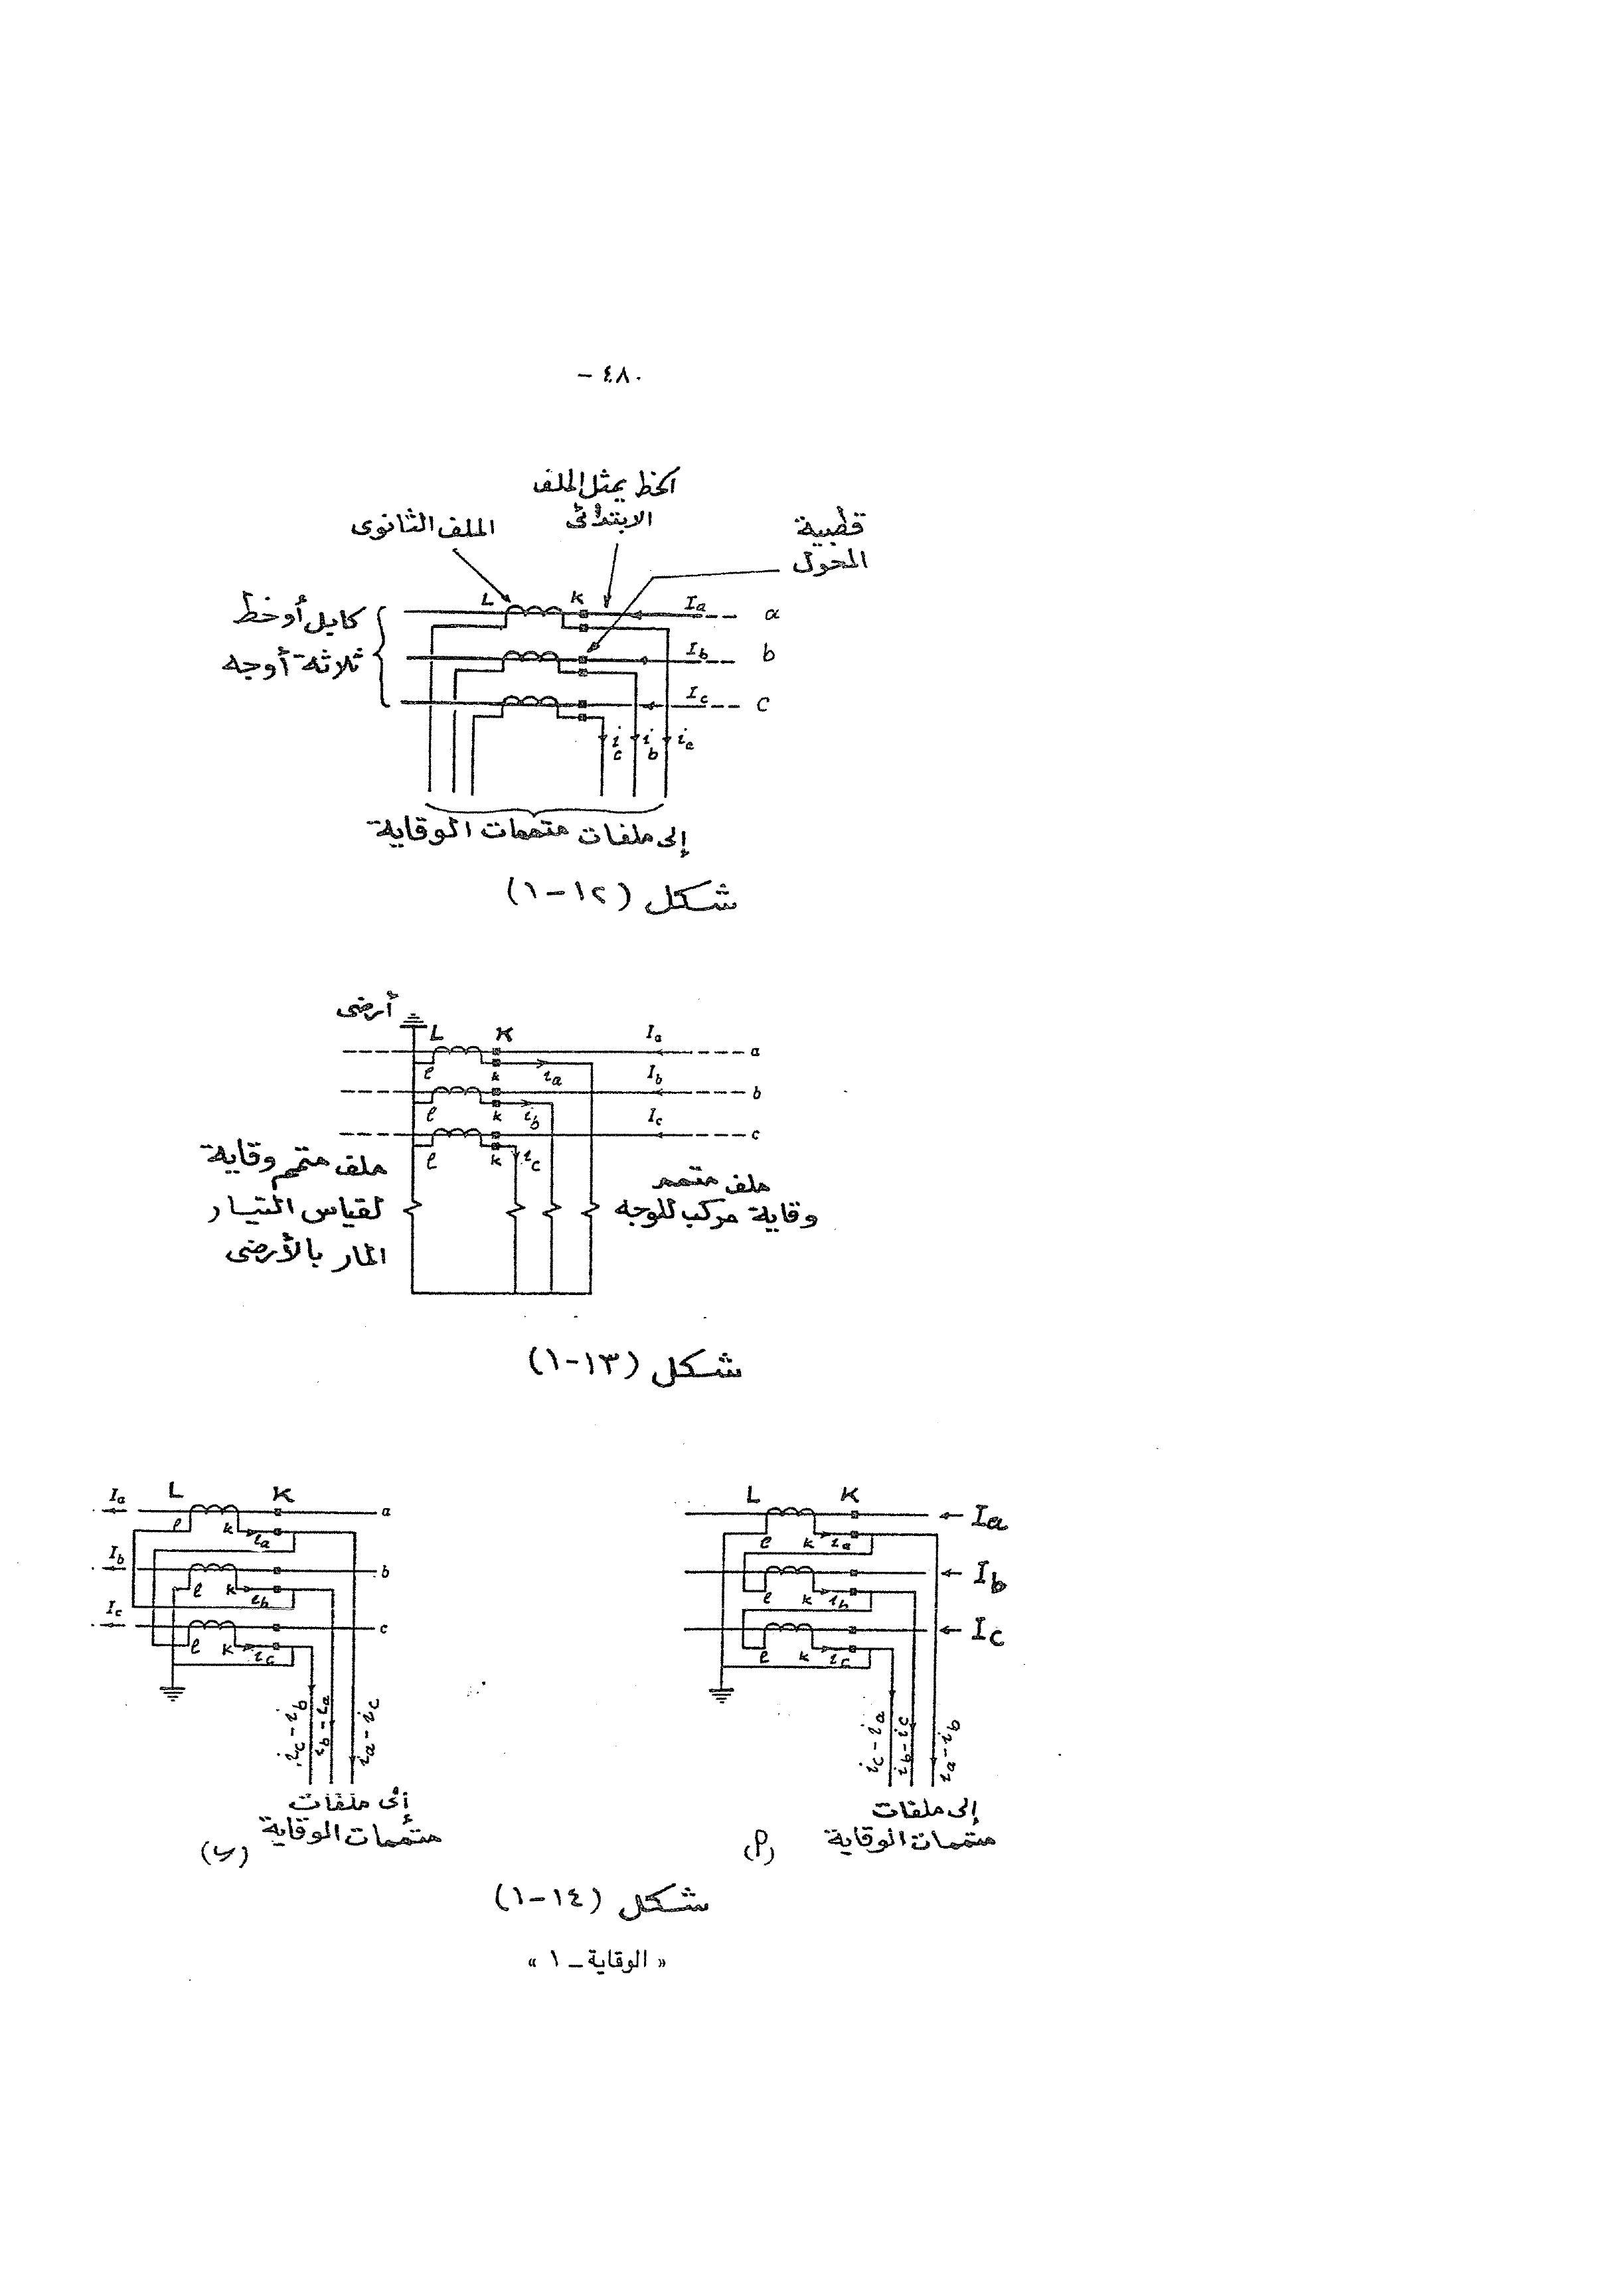 ٤٨٠ –
الخط يمثل الملف
الابتدائى
الملف الثانوى
قطبية
المحول
كابل أو خط
ثلاثة أوجه
L K Ia a
Ib b
Ic c
ic ib ia
إلى ملفات متممات الوقاية
شكل (١٢-١)
أرضى
L K Ia a
l k ia Ib b
l k ib Ic c
l k ic
ملف متمم وقاية
لقياس التيار
المار بالأرضى
ملف متمم
وقاية مركب للوجه
شكل (١٣-١)
L K Ia
l k ia
Ib
l k ib
Ic
l k ic
ic - ia
ib - ic
ia - ib
إلى ملفات
متممات الوقاية
(أ)
Ia L K a
l k ia
Ib b
l k ib
Ic c
l k ic
ic - ib
ib - ia
ia - ic
إلى ملفات
متممات الوقاية
(ب)
شكل (١٤-١)
« الوقاية – ١ »